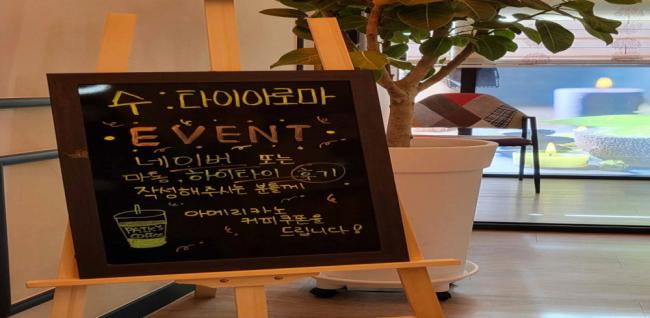 수 타이아로마
• EVENT •
네이버 또는
마통, 하이타이 후기
작성해주시는 분들께
아메리카노
커피쿠폰을
드립니다
PAIK'S
COFFEE